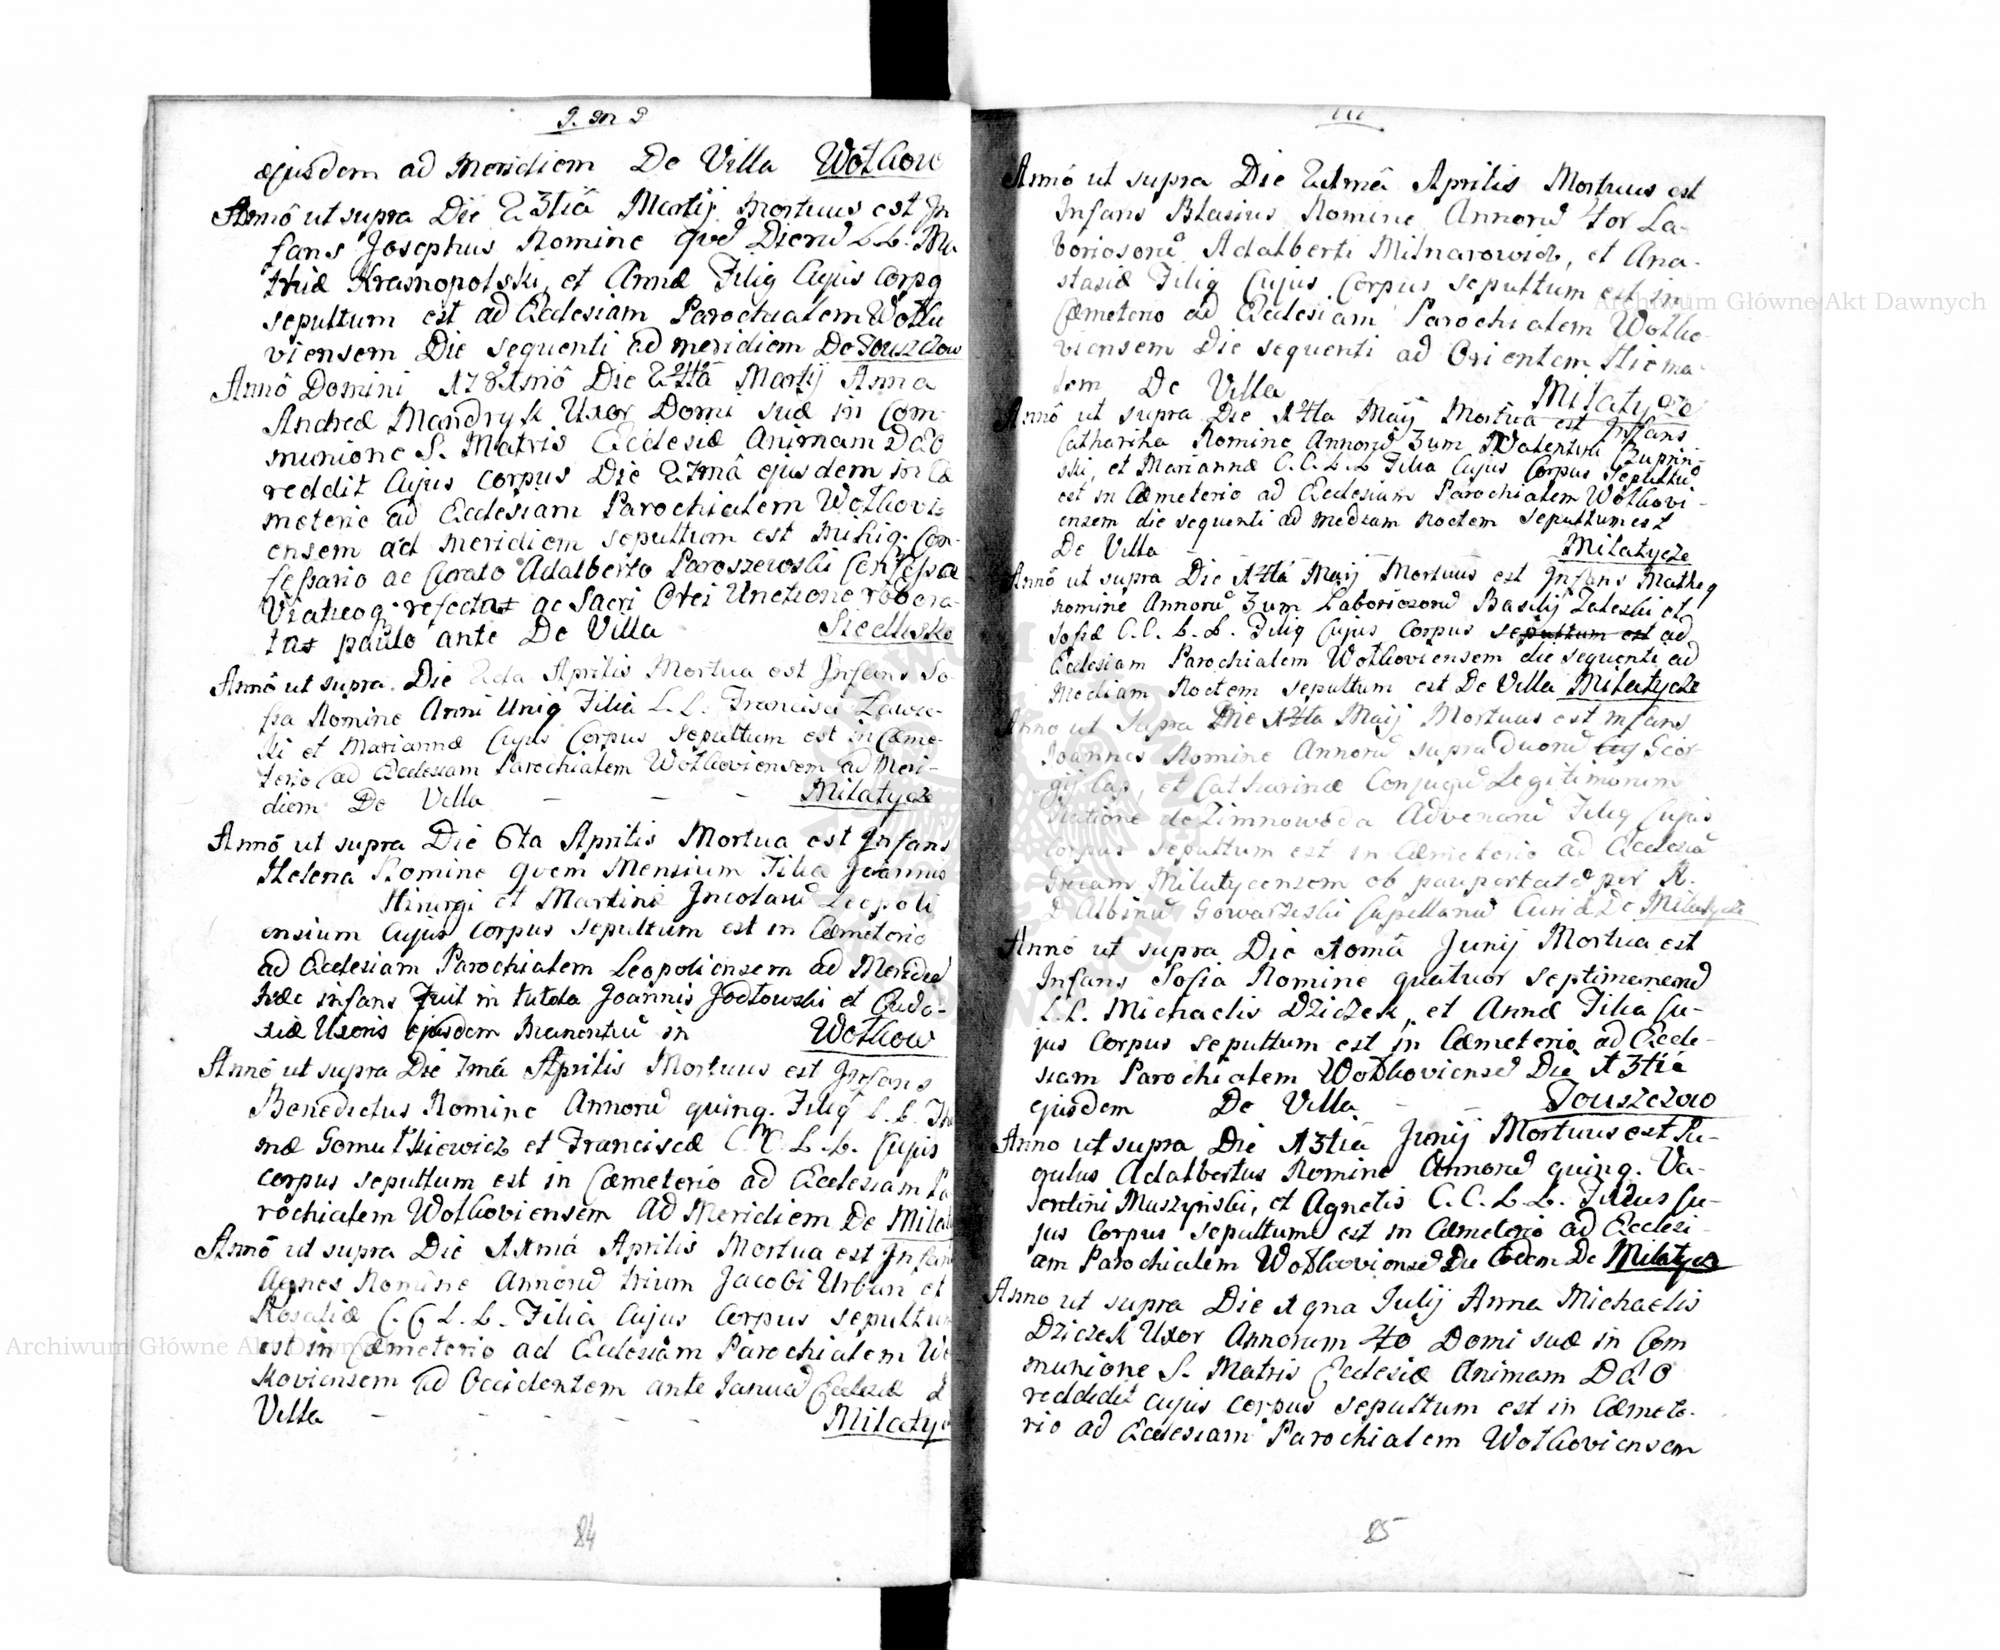 ejusdem ad Meridiem De Villa Wołkow
Annô ut supra Die 23tiâ Martij Mortuus est In
fans Josephus Nomine qve Dierũ L.L. Ma
thiæ Krasnopolski, et Annæ Filiq Cujus Corpq
sepultum est ad Ecclesiam Parochialem Wołko
viensem Die sequenti ad meridiem De Touszczow
Annô Domini Die 24ta Martij Anna
Andreæ Mandryk Uxor Domi suæ in Com-
munione S. Matris Ecclesiæ Animam Dõ
reddit Cujus corpus Die 27mâ ejusdem in Cæ
meterio ad Ecclesiam Parochialem Wołkovi
ensem ad meridiem sepultum est mihiq. Con-
feßario ac Curato Adalberto Paroszewski Confeßa
Viaticoq. refecta ac Sacri Olei Unctione robora-
ta paulo ante De Villa Siedlisko
Annô ut supra. Die 2da Aprilis Mortua est Infans So-
fia Nomine Anni Uniq Filia L.L. Francisci
ki et Mariannæ Cujus Corpus sepultum est in Cæme-
terio ad Ecclesiam Parochialem Wołkoviensem ad Meri-
diem De Villa - - - Milatycze
Annô ut supra Die 6ta Aprilis Mortua est Infans
Helena Nomine Mensium Filia Joannis
Hirurgi et Martini Incolarũ Leopoli
ensium Cujus Corpus sepultum est in Cæmeterio
ad Ecclesiam Parochialem Leopoliensem ad Meridiẽ
hæc infans fuit in tutela Joannis Jodłowski et Eudo-
xiæ Uxoris ejusdem Manentiũ in Wołkow
Annô ut supra Die 7mâ Aprilis Mortuus est Infans
Benedictus Nomine Annorũ quinq. Filiq L.L. Tho
mæ Gomułkiewicz et Franciscæ C.C.L.L. Cujus
corpus sepultum est in Cæmeterio ad Ecclesiam Pa
rochialem Wołkoviensem Ad Meridiem De Milat
Annô ut supra Die 11mâ Aprilis Mortua est Infans
Agnes Nomine Annorũ trium Jacobi Urban et
Rosaliæ C.C.L.L. Filia Cujus Corpus sepultum
est in Cæmeterio ad Ecclesiam Parochialem Wo
koviensem ad Occidentem ante Januã Ecclesiæ D
Villa - - - - - Milatyc
84
Annô ut supra Die Aprilis Mortuus est
Infans Blasius Nomine Annorũ 4or La-
boriosorũ Adalberti Milnarowicz, et Ana-
stasiæ Filiq Cujus Corpus sepultum est in
Cæmeterio ad Ecclesiam Parochialem Wołko-
viensem Die sequenti ad Orientem Hiema-
lem De Villa - - Milatycze
Annô ut supra Die 14ta Maij Mortua est Infans
Catharina Nomine Annorũ 3um Valentini Czuprin-
ski, et Mariannæ C.C.L.L. Filia Cujus Corpus sepultũ
est in Cæmeterio ad Ecclesiam Parochialem Wołkovi-
ensem die sequenti ad mediam noctem sepultum est
De Villa - - - - Milatycze
Annô ut supra Die 14ta Maij Mortuus est Infans Matheq
nomine Annorũ 3um Laboriosorũ Basilij Zaleski et
Sofiæ C.C.L.L. Filiq Cujus Corpus sepultum est ad
Ecclesiam Parochialem Wołkoviensem die sequenti ad
Mediam Noctem sepultum est De Villa Milatycze
Anno ut supra Die 14ta Maij Mortuus est infans
Joannes Nomine Annorũ supra duorũ Geor-
gij Cap, et Catharinæ Conjugũ Legitimorum
de Zimnowoda Advenarũ Filiq Cujus
Corpus sepultum est in Cæmeterio ad Ecclesiã
Milatycensem ob paupertatẽ per R.
D Albinũ Gowarzeski Capellanũ Curiæ De Milatycze
Annô ut supra Die Junij Mortua est
Infans Sofia Nomine quatuor septimanarũ
L.L. Michaelis Dziczek, et Annæ Filia Cu-
jus Corpus sepultum est in Cæmeterio ad Eccle-
siam Parochialem Wołkoviensẽ Die 13tiâ
ejusdem De Villa - - Touszczow
Anno ut supra Die 13tiâ Junij Mortuus est Pu-
erulus Adalbertus Nomine Annorũ quinq. Va-
lentini Muszyński, et Agnetis C.C.L.L. Filius Cu-
jus Corpus sepultum est in Cæmeterio ad Ecclesi-
am Parochialem Wołkoviensẽ Die Eodem De Milatycze
Anno ut supra Die Julij Anna Michaelis
Dziczek Uxor Annorum 40 Domi suæ in Com
munione S. Matris Ecclesiæ Animam Dõ
reddidit cujus corpus sepultum est in Cæmete-
rio ad Ecclesiam Parochialem Wołkoviensem
85
Archiwum Główne Akt Dawnych
Archiwum Główne Akt Dawnych